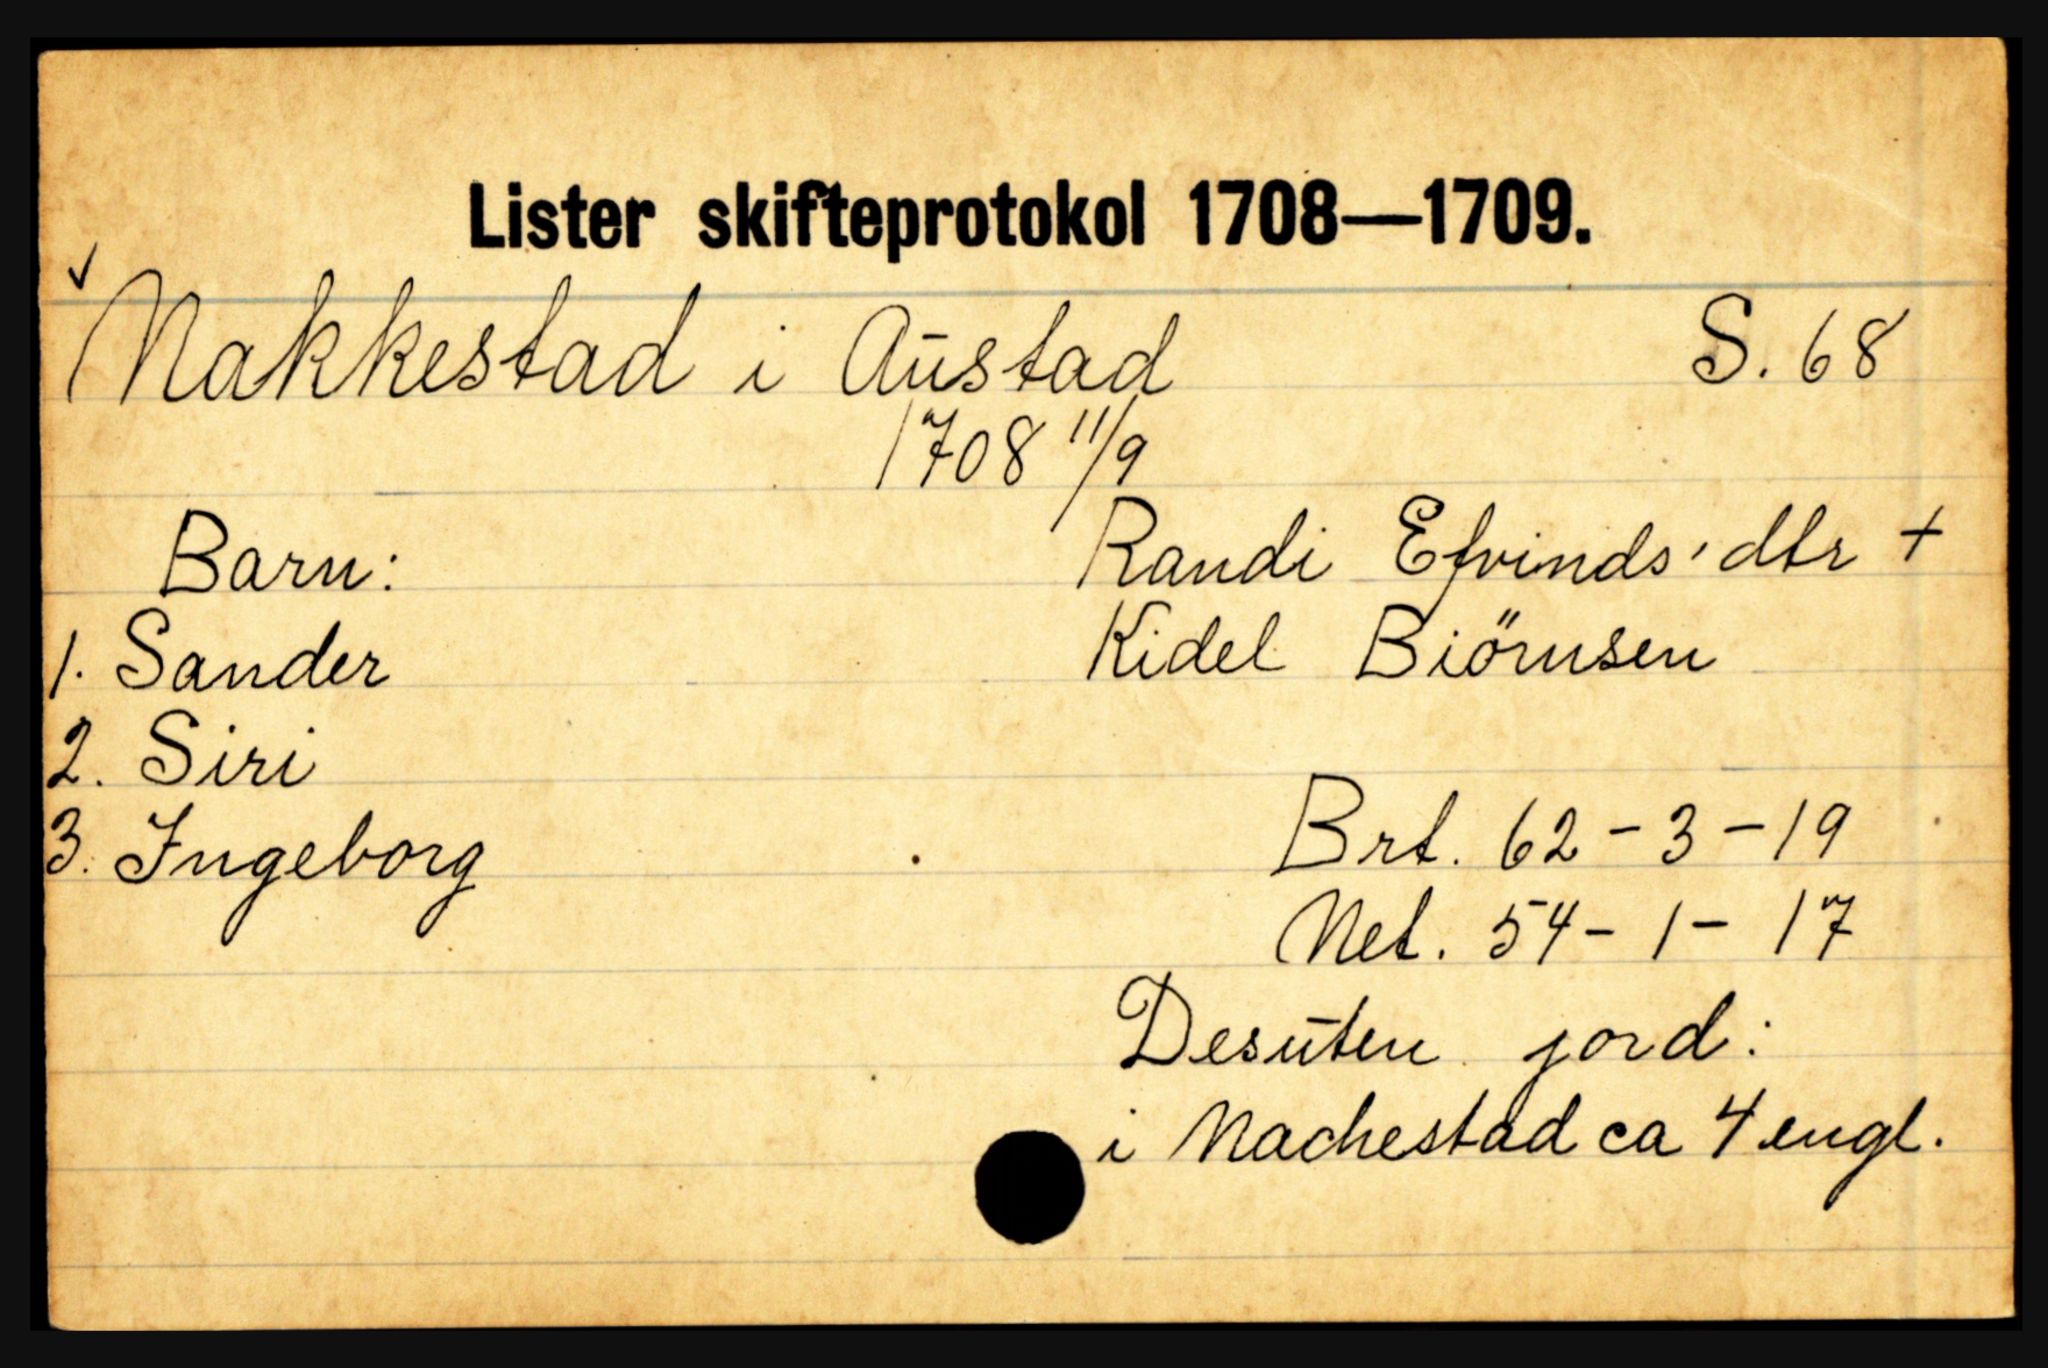 Lister skifteprotokol 1708—1709.
✓ Nakkestad i Austad S. 68
1708 11/9
Barn:
1. Sander
2. Siri
3. Ingeborg
Randi Efvinds'dtr +
Kidel Biörnsen
Brt. 62-3-19
Net. 54-1-17
Desuten jord:
i Nachestad ca 4 engl.